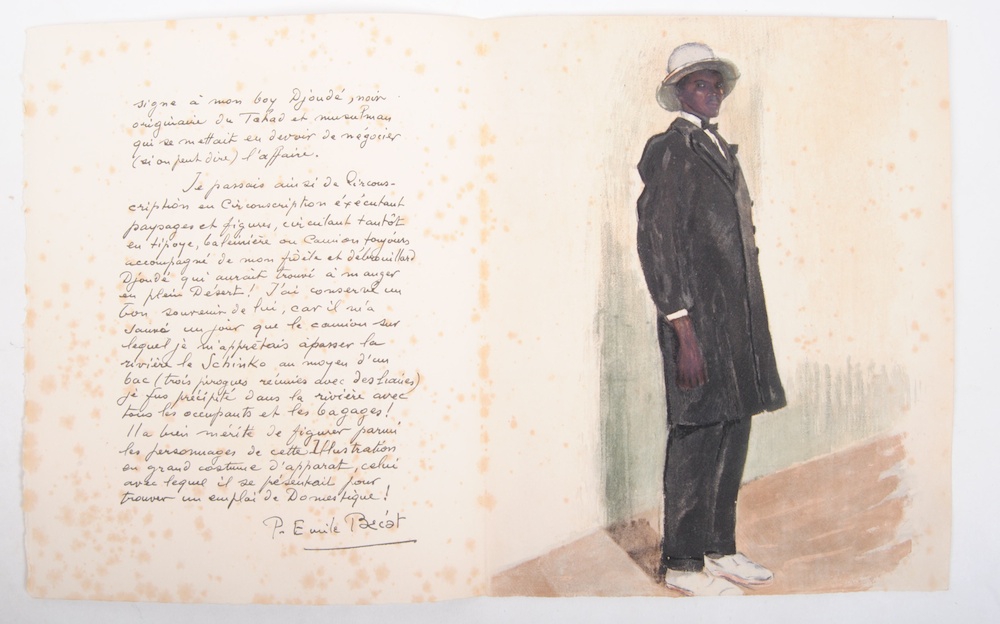 signe à mon boy Djoudé, noir
originaire du Tchad et musulman
qui se mettait en devoir de négocier
(si on peut dire) l'affaire.
Je passais ainsi de Circons-
cription en Circonscription éxécutant
paysages et figures, circulant tantôt
en tipoye, baleinière ou Camion toujours
accompagné de mon fidèle et débrouillard
Djoudé qui aurait trouvé à manger
en plein Désert! J'ai conservé un
bon souvenir de lui, car il m'a
sauvé un jour que le camion sur
lequel je m'apprêtais à passer la
rivière le Schinko au moyen d'un
bac (trois pirogues réunies avec des lianes)
je fus précipité dans la rivière avec
tous les occupants et les bagages!
Il a bien mérité de figurer parmi
les personnages de cette Illustration
en grand costume d'apparat, celui
avec lequel il se présentait pour
trouver un emploi de Domestique!
P. Emile Bécat